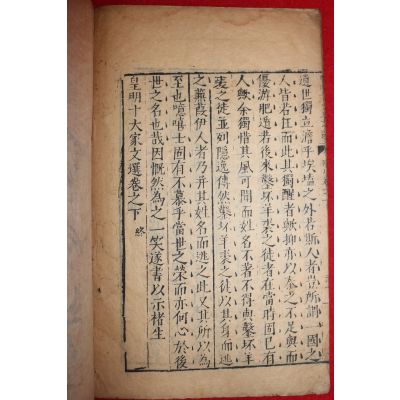 遁世獨立澹乎埃壒之外若斯人者豈所謂一國之
人皆若狂而此其獨醒者歟抑亦以秦之不足與而
優游肥遁者若後來鑿坏羊裘之徒者在當時固已有
人歟余獨惜其風可聞而姓名不著不得與鑿坏羊
裘之徒並列隱逸傳然鑿坏羊裘之徒以其身而逃
之蒹葭伊人者乃并其姓名而逃之此又其所以為
至也噫嘻士固有不慕乎當世之榮而亦何心於後
世之名也哉因慨然為之一笑遂書以示楮生
皇明十大家文選卷之下 終